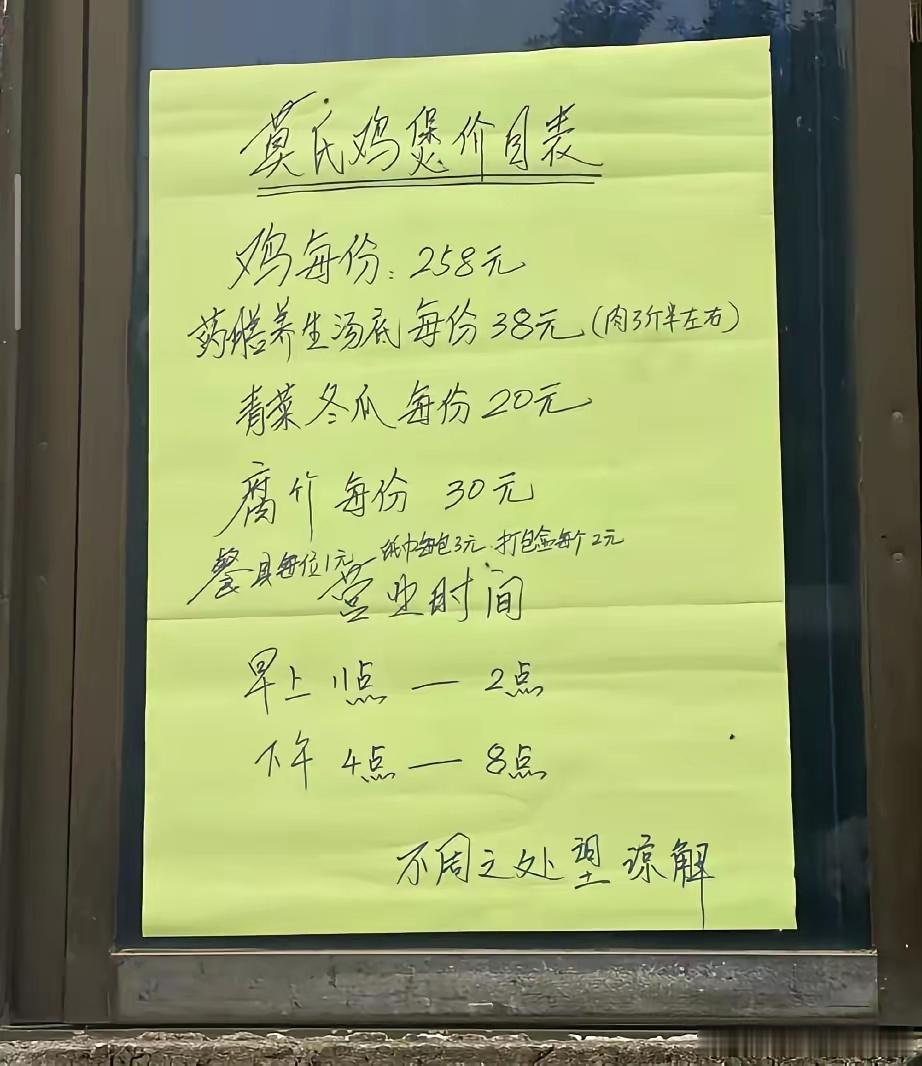 莫氏鸡煲价目表
鸡每份：258元
药膳养生汤底每份38元（肉3斤半左右）
青菜冬瓜每份20元
腐竹每份 30元
餐具每位1元 纸巾每包3元、打包盒每个2元
营业时间
早上 11点 — 2点
下午 4点 — 8点
不周之处望谅解